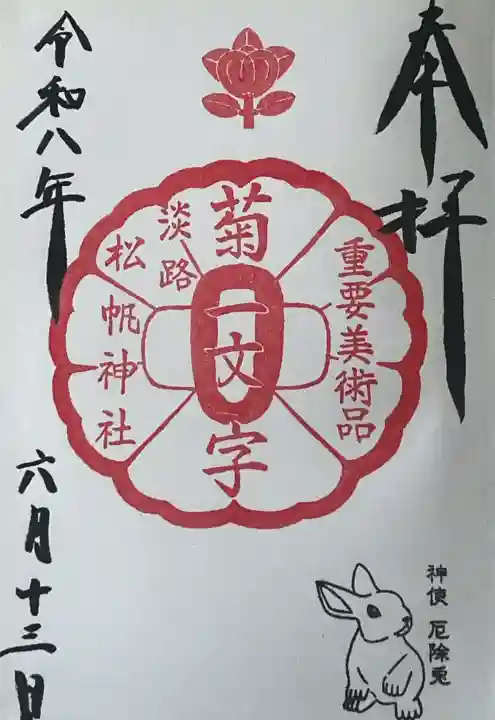 奉拝
重要美術品
菊一文字
淡路
松帆神社
令和八年
六月十三日
神使 厄除兎